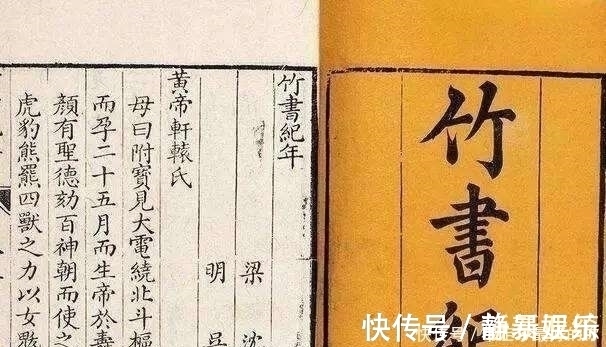 竹書紀
竹書紀年
梁 沈
明
黃帝軒轅氏
母曰附寶見大電繞北斗樞
而孕二十五月而生帝於壽
顏有聖德劾百神朝而使之
虎豹熊羆四獸之力以女魃
快传号／